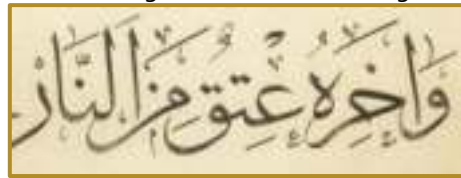 وَاخِرَهُ عِتِقُ مِنَ النَّارْ